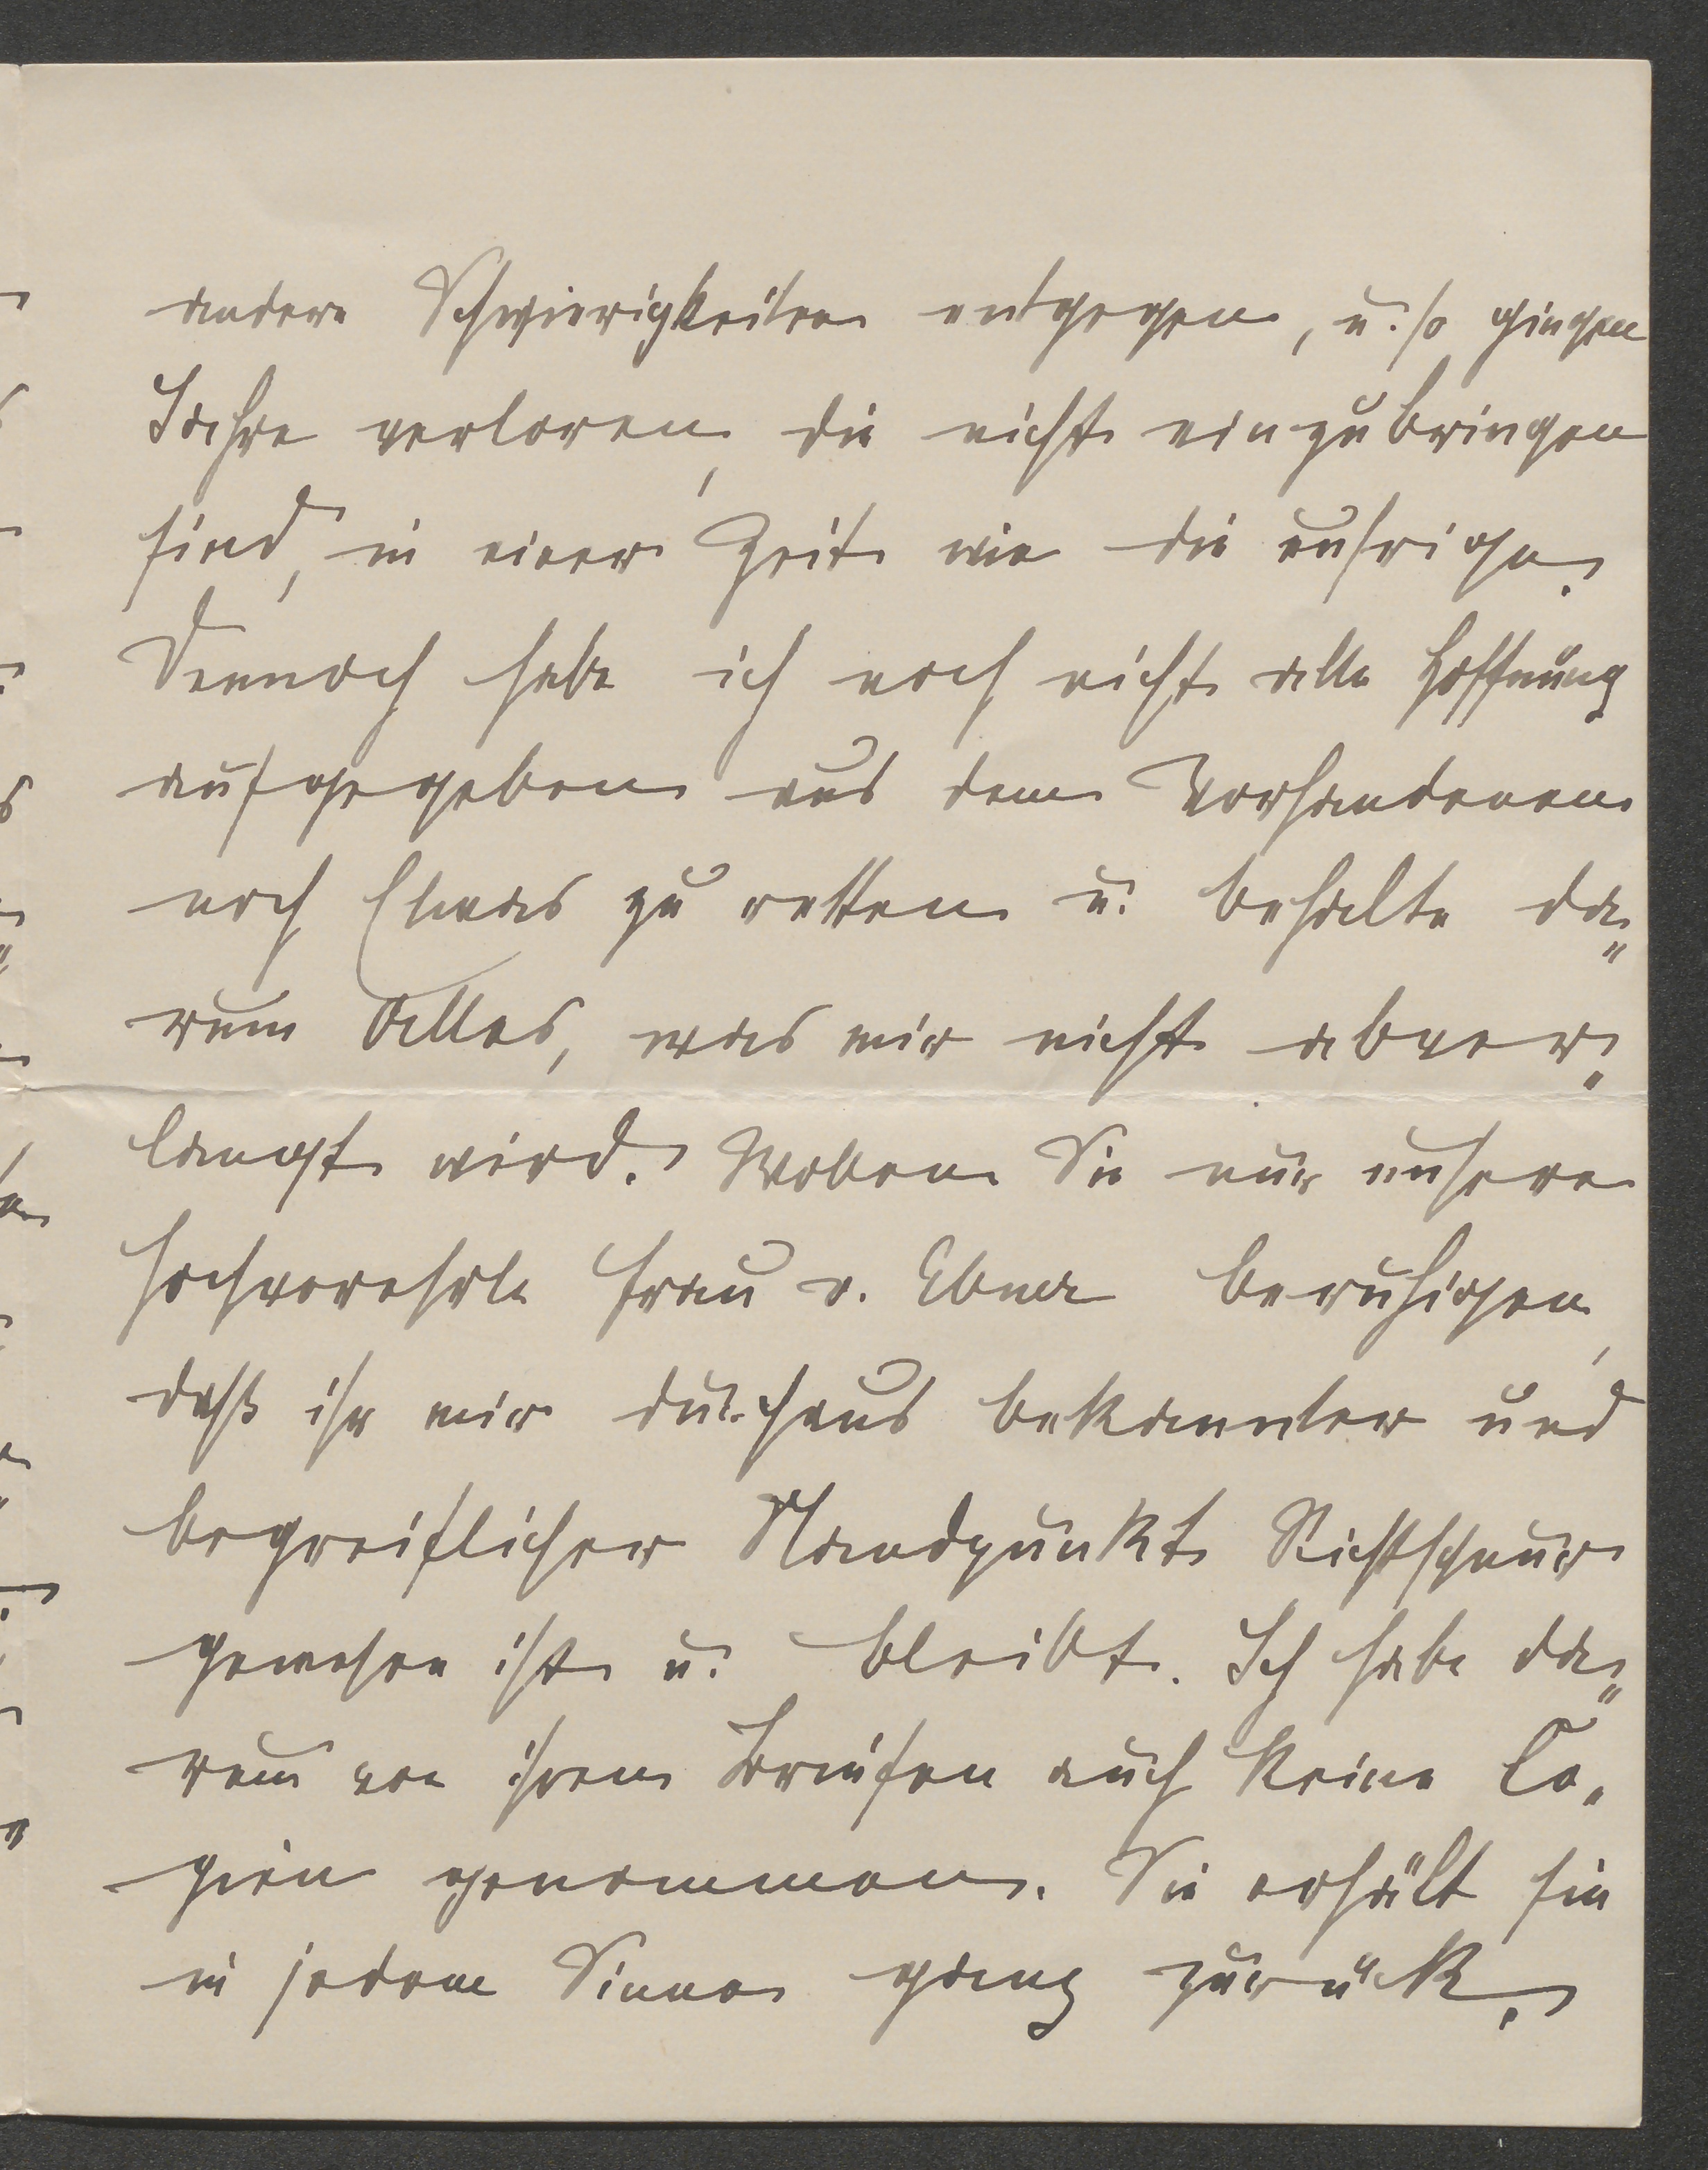 andere Schwierigkeiten entgegen, u. so gingen
Jahre verloren, die nicht einzubringen
sind, in einer Zeit wie die unsrige.
Dennoch habe ich noch nicht alle Hoffnung
aufgegeben aus dem Vorhandenen
noch Etwas zu retten u. behalte da„
rum Alles, was mir nicht abver„
langt wird. Wollen Sie nur unsere
hochverehrte Frau v. Ebner beruhigen,
daß ihr mir durchaus bekannter und
begreiflicher Standpunkt Richtschnur
gewesen ist u. bleibt. Ich habe da„
rum von ihren Briefen auch keine Co„
pien genommen. Sie erhält sie
in jedem Sinne ganz zurück.